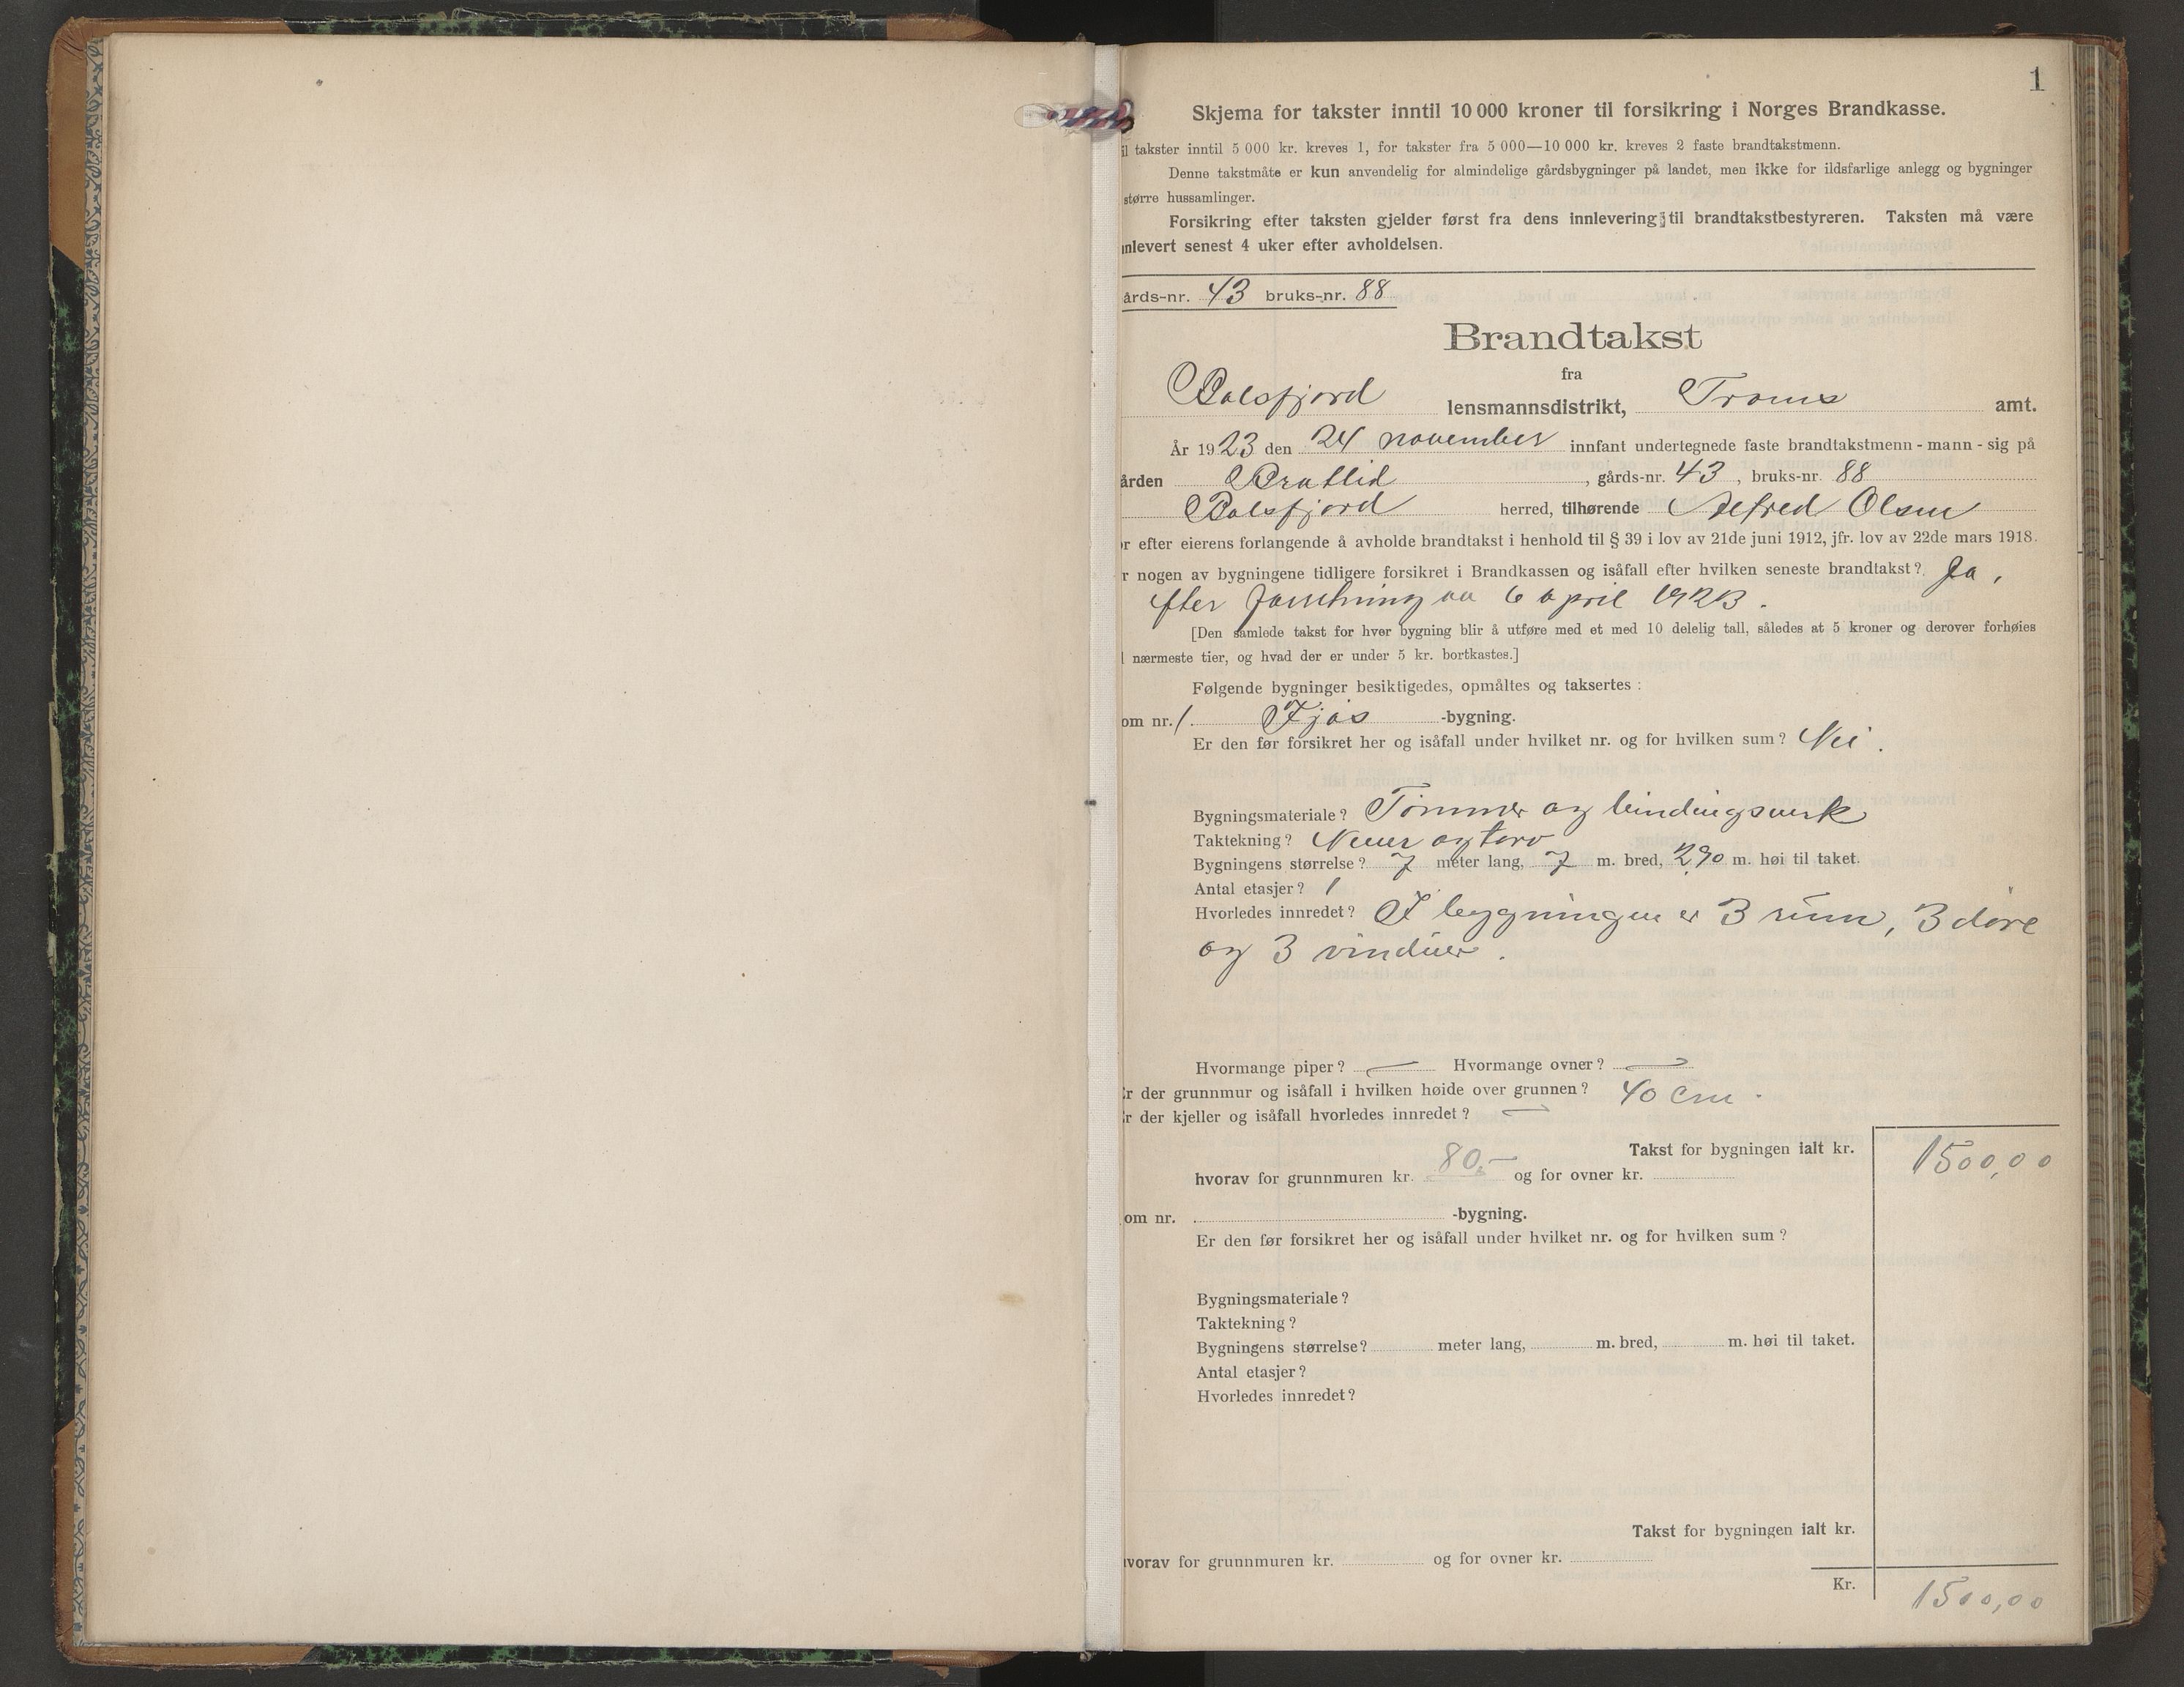 1
Skjema for takster inntil 10 000 kroner til forsikring i Norges Brandkasse.
il takster inntil 5 000 kr. kreves 1, for takster fra 5 000—10 000 kr. kreves 2 faste brandtakstmenn.
Denne takstmåte er kun anvendelig for almindelige gårdsbygninger på landet, men ikke for ildsfarlige anlegg og bygninger
større hussamlinger.
Forsikring efter taksten gjelder først fra dens innlevering til brandtakstbestyreren. Taksten må være
nlevert senest 4 uker efter avholdelsen.
årds-nr. 43 bruks-nr. 88
Brandtakst
fra
Balsfjord lensmannsdistrikt, Troms amt.
År 1923 den 24 november innfant undertegnede faste brandtakstmenn - mann - sig på
ården Bratlid, gårds-nr. 43, bruks-nr. 88
Balsfjord herred, tilhørende Alfred Olsen
or efter eierens forlangende å avholde brandtakst i henhold til § 39 i lov av 21de juni 1912, jfr. lov av 22de mars 1918.
r nogen av bygningene tidligere forsikret i Brandkassen og isåfall efter hvilken seneste brandtakst? Ja,
efter forretning av 6 april 1923.
[Den samlede takst for hver bygning blir å utføre med et med 10 delelig tall, således at 5 kroner og derover forhøies
l nærmeste tier, og hvad der er under 5 kr. bortkastes.]
Følgende bygninger besiktigedes, opmåltes og taksertes:
om nr. 1. Fjøs -bygning.
Er den før forsikret her og isåfall under hvilket nr. og for hvilken sum? Nei.
Bygningsmateriale? Tømmer og bindingsverk
Taktekning? Never og torv
Bygningens størrelse? 7 meter lang, 7 m. bred, 2,90 m. høi til taket.
Antal etasjer? 1
Hvorledes innredet? I bygningen er 3 rum, 3 døre
og 3 vinduer.
Hvormange piper? — Hvormange ovner? —
r der grunnmur og isåfall i hvilken høide over grunnen? 40 cm.
r der kjeller og isåfall hvorledes innredet? —
Takst for bygningen ialt kr. 1500,00
hvorav for grunnmuren kr. 80,- og for ovner kr.
om nr. -bygning.
Er den før forsikret her og isåfall under hvilket nr. og for hvilken sum?
Bygningsmateriale?
Taktekning?
Bygningens størrelse? meter lang, m. bred, m. høi til taket.
Antal etasjer?
Hvorledes innredet?
Takst for bygningen ialt kr.
vorav for grunnmuren kr. og for ovner kr.
Kr. 1500,00